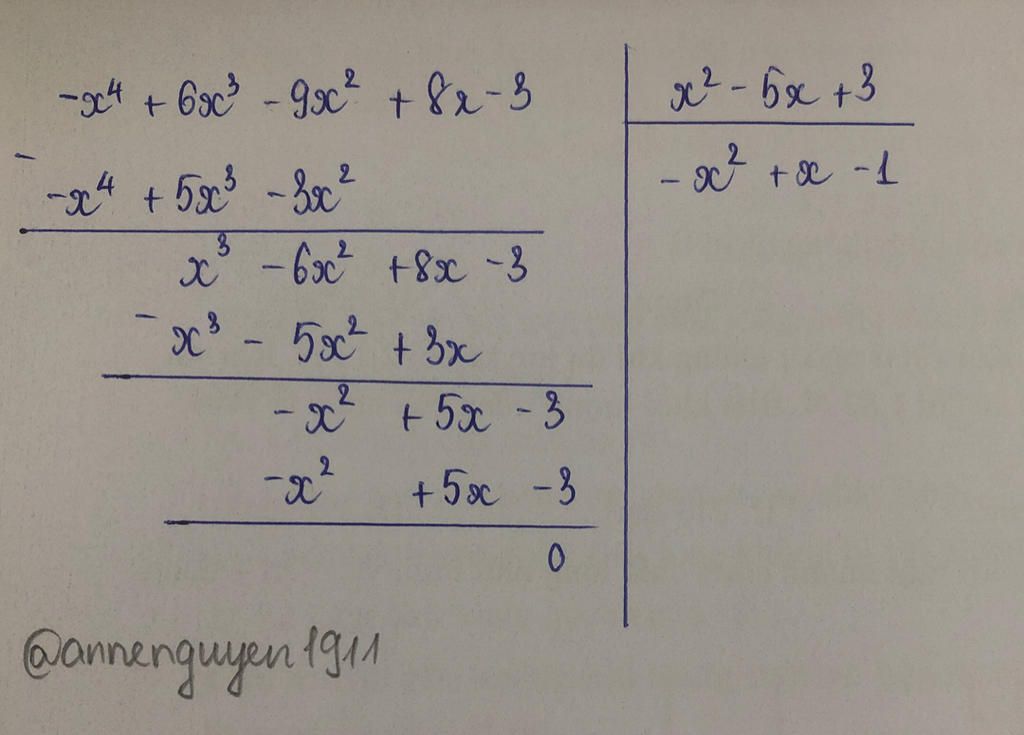 -x⁴ + 6x³ - 9x² + 8x - 3
x² - 5x + 3
-
-x⁴ + 5x³ - 3x²
- x² + x - 1
x³ - 6x² + 8x - 3
-
x³ - 5x² + 3x
- x² + 5x - 3
- x² + 5x - 3
0
@annenguyen1911